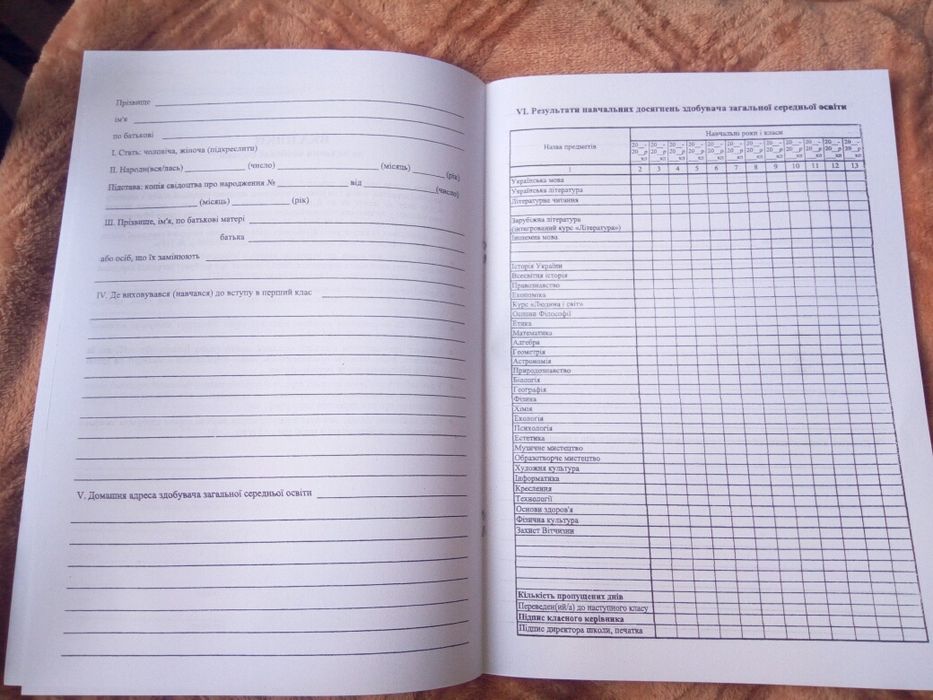 Прізвище
ім'я
по батькові
І. Стать: чоловіча, жіноча (підкреслити)
ІІ. Народи(вся/лась) (число) (місяць) (рік)
Підстава: копія свідоцтва про народження № від (число)
(місяць) (рік)
ІІІ. Прізвище, ім'я, по батькові матері
батька
або осіб, що їх замінюють
IV. Де виховувався (навчався) до вступу в перший клас
V. Домашня адреса здобувача загальної середньої освіти
VI. Результати навчальних досягнень здобувача загальної середньої освіти
Назва предметів
Навчальні роки і класи
20__- 20__- 20__- 20__- 20__- 20__- 20__- 20__- 20__- 20__- 20__- 20__-
20__р 20__р 20__р 20__р 20__р 20__р 20__р 20__р 20__р 20__р 20__р 20__р
__кл __кл __кл __кл __кл __кл __кл __кл __кл __кл __кл __кл
1 2 3 4 5 6 7 8 9 10 11 12 13
Українська мова
Українська література
Літературне читання
Зарубіжна література
(інтегрований курс «Література»)
Іноземна мова
Історія України
Всесвітня історія
Правознавство
Економіка
Курс «Людина і світ»
Основи Філософії
Етика
Математика
Алгебра
Геометрія
Астрономія
Природознавство
Біологія
Географія
Фізика
Хімія
Екологія
Психологія
Естетика
Музичне мистецтво
Образотворче мистецтво
Художня культура
Інформатика
Креслення
Технології
Основи здоров'я
Фізична культура
Захист Вітчизни
Кількість пропущених днів
Переведен(ий/а) до наступного класу
Підпис класного керівника
Підпис директора школи, печатка